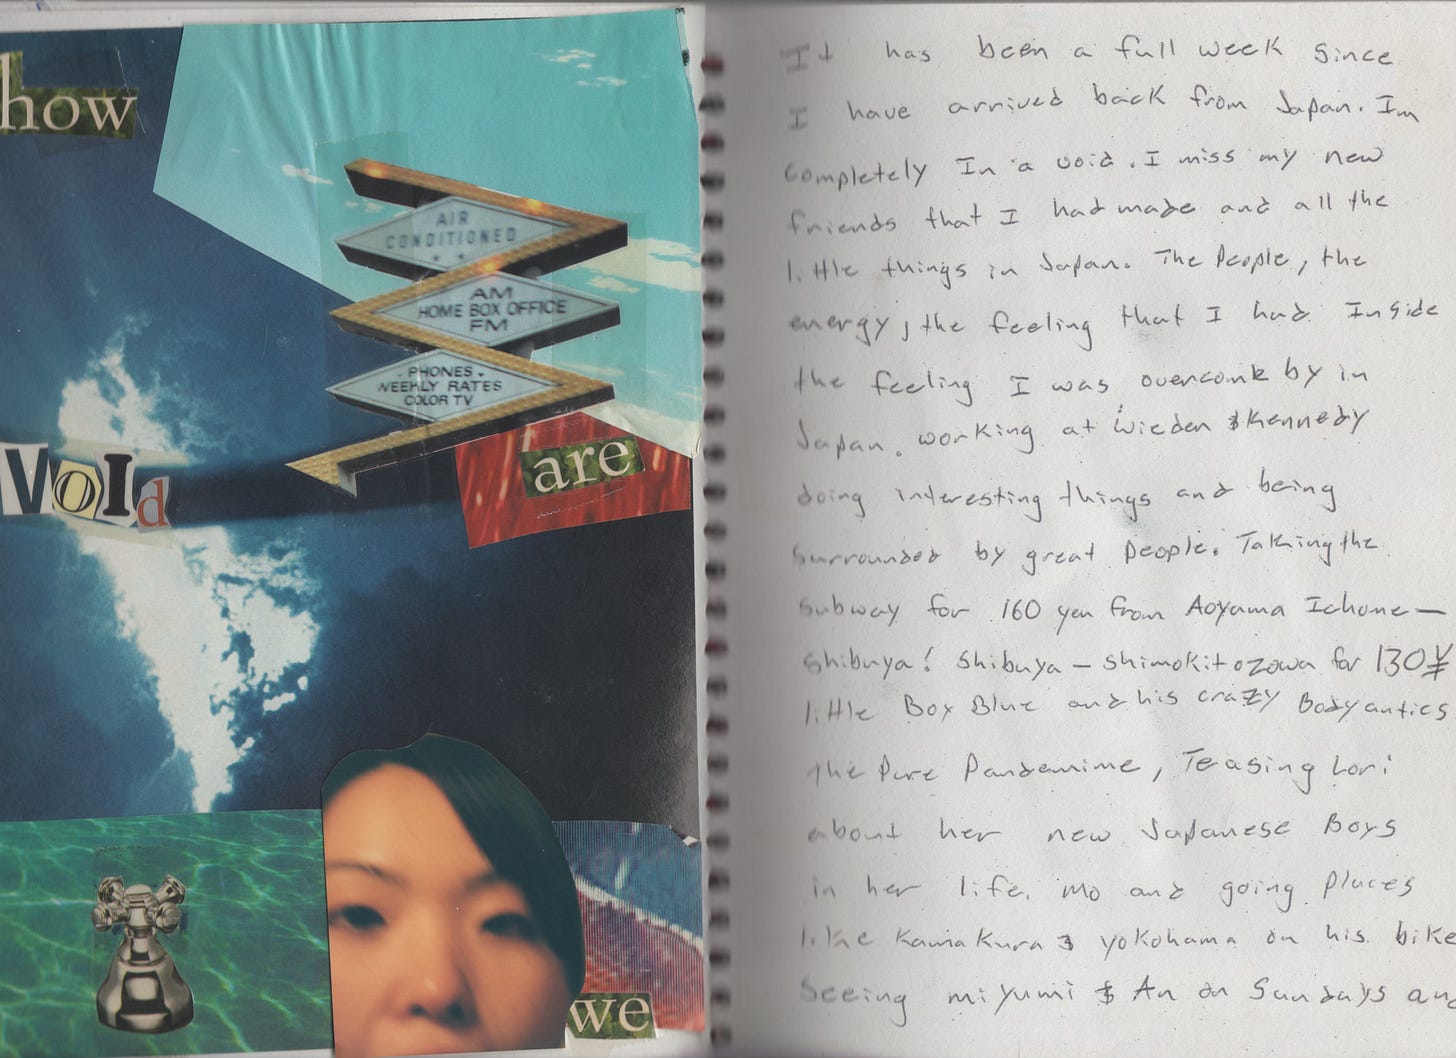 how
AIR
CONDITIONED
AM
HOME BOX OFFICE
FM
PHONES
WEEKLY RATES
COLOR TV
VOId
are
we
It has been a full week since
I have arrived back from Japan. Im
completely In a void. I miss my new
friends that I had made and all the
little things in Japan. The People, the
energy, the feeling that I had Inside
the feeling I was overcome by in
Japan. working at Wieden & Kennedy
doing interesting things and being
surrounded by great people. Taking the
subway for 160 yen from Aoyama Ichome —
Shibuya! Shibuya — Shimokitozowa for 130¥
little Box Blue and his crazy Body antics
the Pure Pandemime, Teasing Lori
about her new Japanese Boys
in her life. Mo and going places
like Kamakura & yokohama on his bike
Seeing miyumi & An on Sundays and